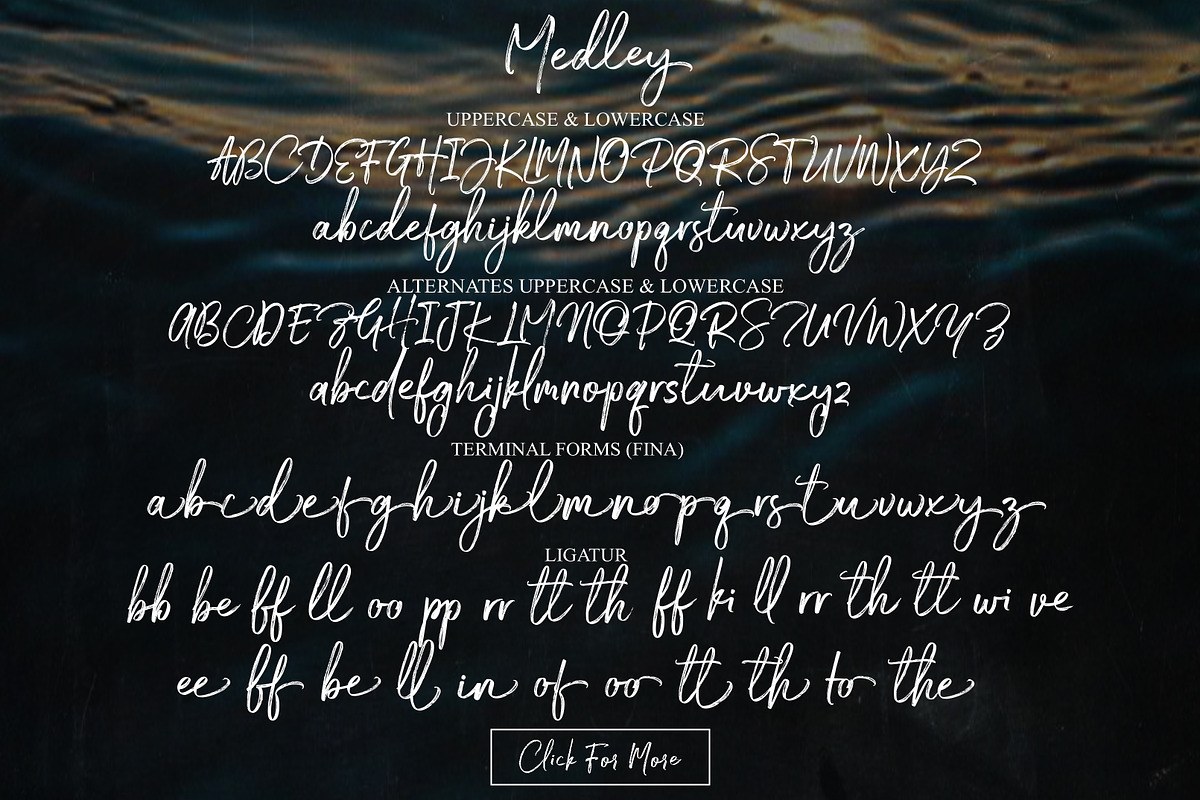 Medley
UPPERCASE & LOWERCASE
ABCDEFGHIJKLMNOPQRSTUVWXYZ
abcdefghijklmnopqrstuvwxyz
ALTERNATES UPPERCASE & LOWERCASE
ABCDEFGHIJKLMNOPQRSTUVWXYZ
abcdefghijklmnopqrstuvwxyz
TERMINAL FORMS (FINA)
abcdefghijklmnopqrstuvwxyz
LIGATUR
bb be ff ll oo pp rr tt th ff ki ll rr th tt wi ve
ee ff be ll in of oo tt th to the
Click For More